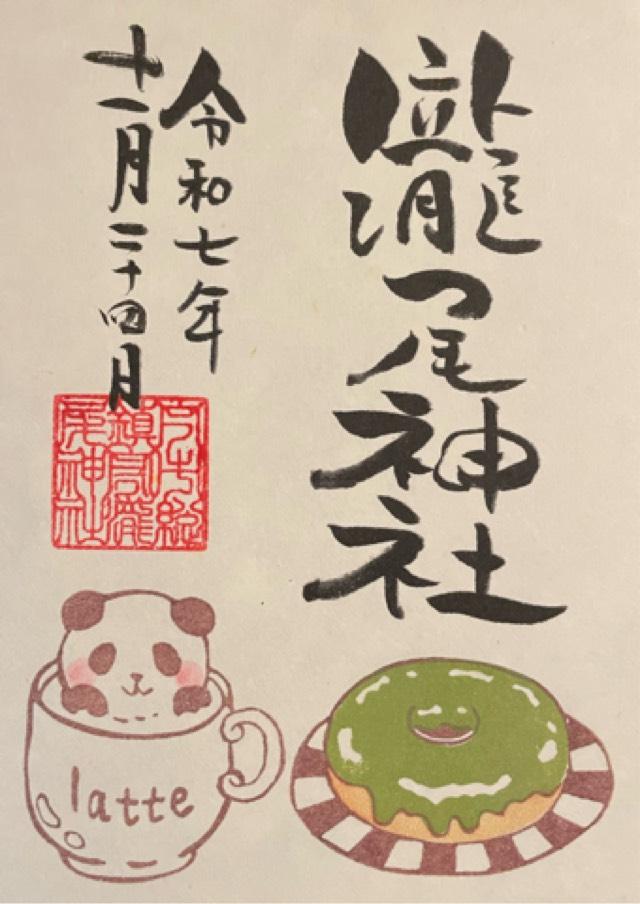 瀧尾神社
令和七年
十一月二十四日
尾神社
latte